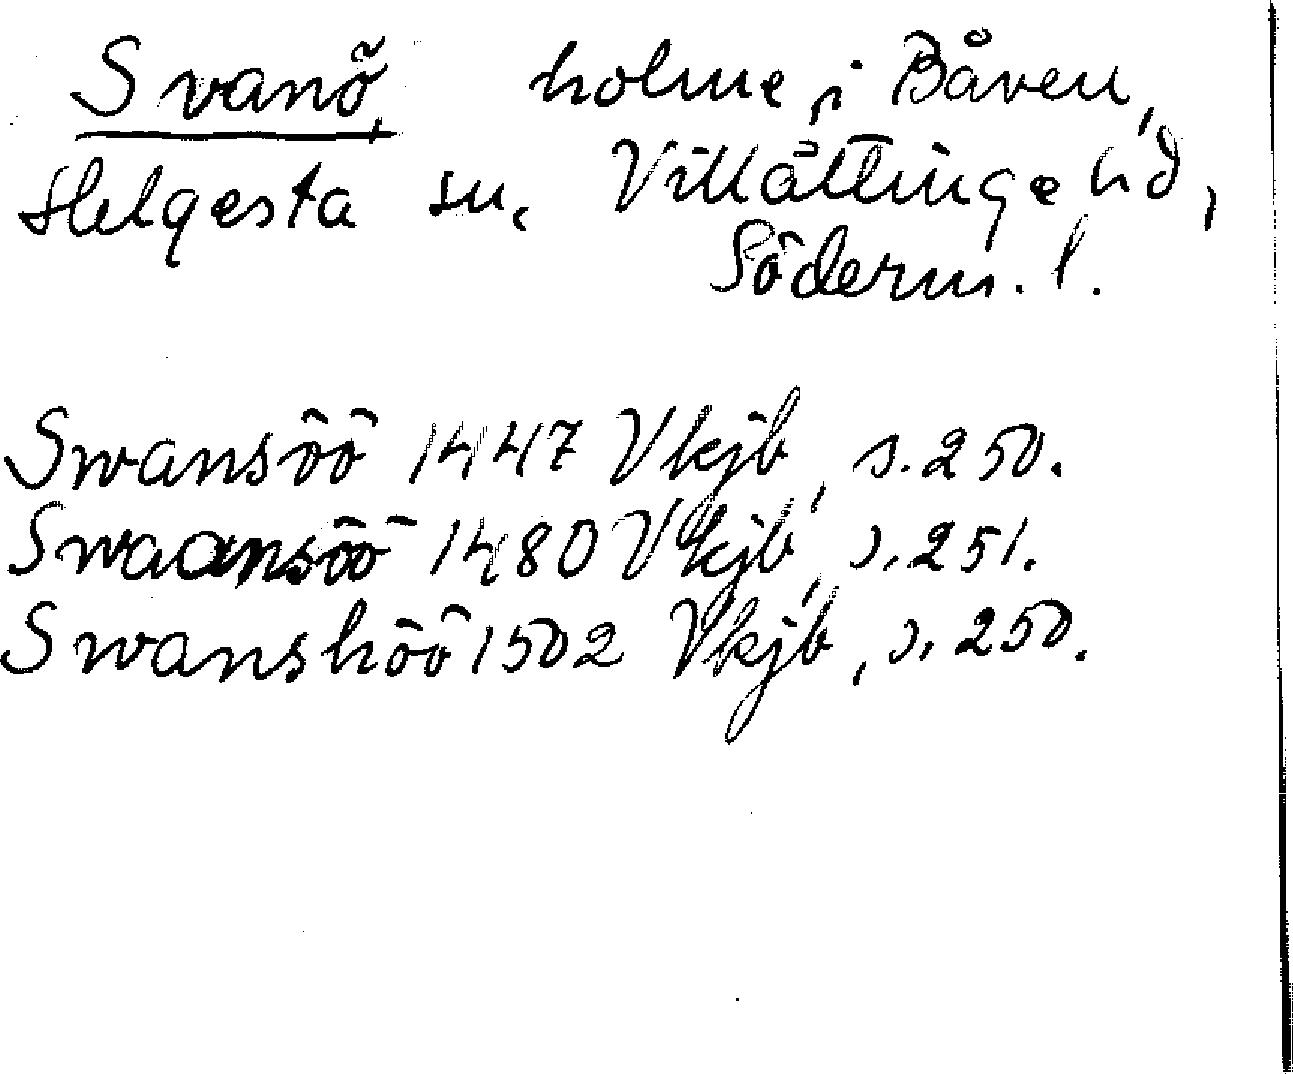 Svanö, holme, i Båven,
Helgesta sn, Villåttinge hd,
Söderm. l.
Swansöö 1447 Vkjb, s. 250.
Swaansöö 1480 Vkjb, s. 251.
Swanshöö 1502 Vkjb, s. 250.